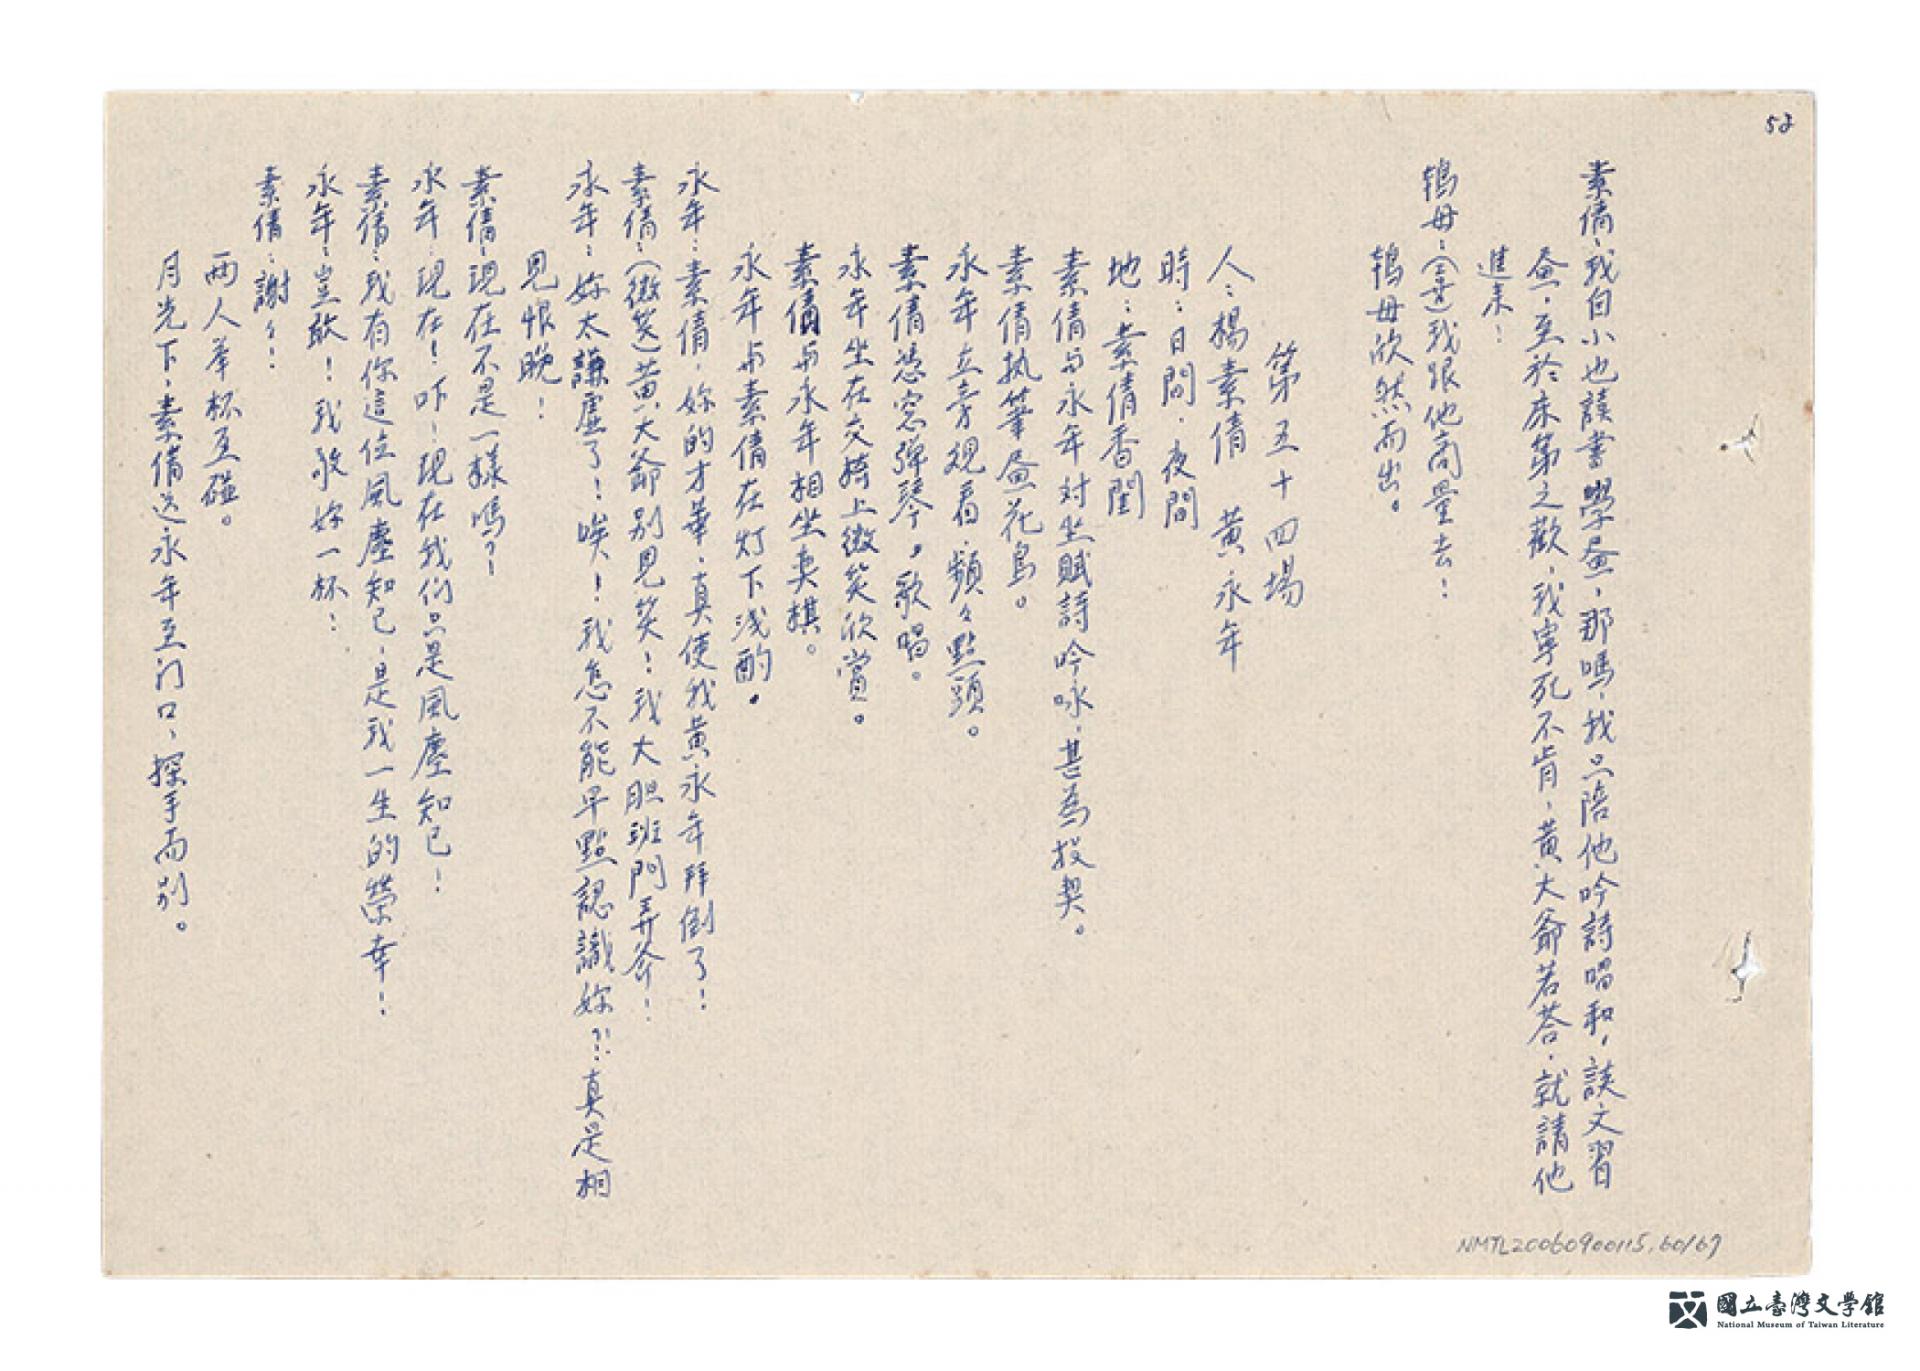 58
素倩：我自小也讀書學畫，那嗎，我只陪他吟詩唱和，談文習
畫，至於床第之歡，我寧死不肯，黃大爺若荅，就請他
進來！
鴇母：(喜)我跟他商量去！
鴇母欣然而出。
第五十四場
人：楊素倩 黃永年
時：日間，夜間
地：素倩香閨
素倩与永年对坐賦詩吟咏，甚為投契。
素倩执筆畫花鳥。
永年立旁观看，頻々點頭。
素倩憑窓弹琴。歌唱。
永年坐在交椅上微笑欣賞。
素倩与永年相坐奕棋。
永年与素倩在灯下浅酌。
永年：素倩，妳的才華，真使我黃永年拜倒了！
素倩：(微笑)黃大爺别見笑！我大胆班門弄斧！
永年：妳太謙虛了！唉！我怎不能早點認識妳？！真是相
見恨晚！
素倩：現在不是一樣嗎？！
永年：現在！吓！現在我们只是風塵知己！
素倩：我有你這位風塵知己，是我一生的榮幸！
永年：豈敢！我敬妳一杯！
素倩：謝々！
两人举杯互碰。
月光下，素倩送永年至门口，探手而别。
NMTL20060900115.60/67
國立臺灣文學館
National Museum of Taiwan Literature